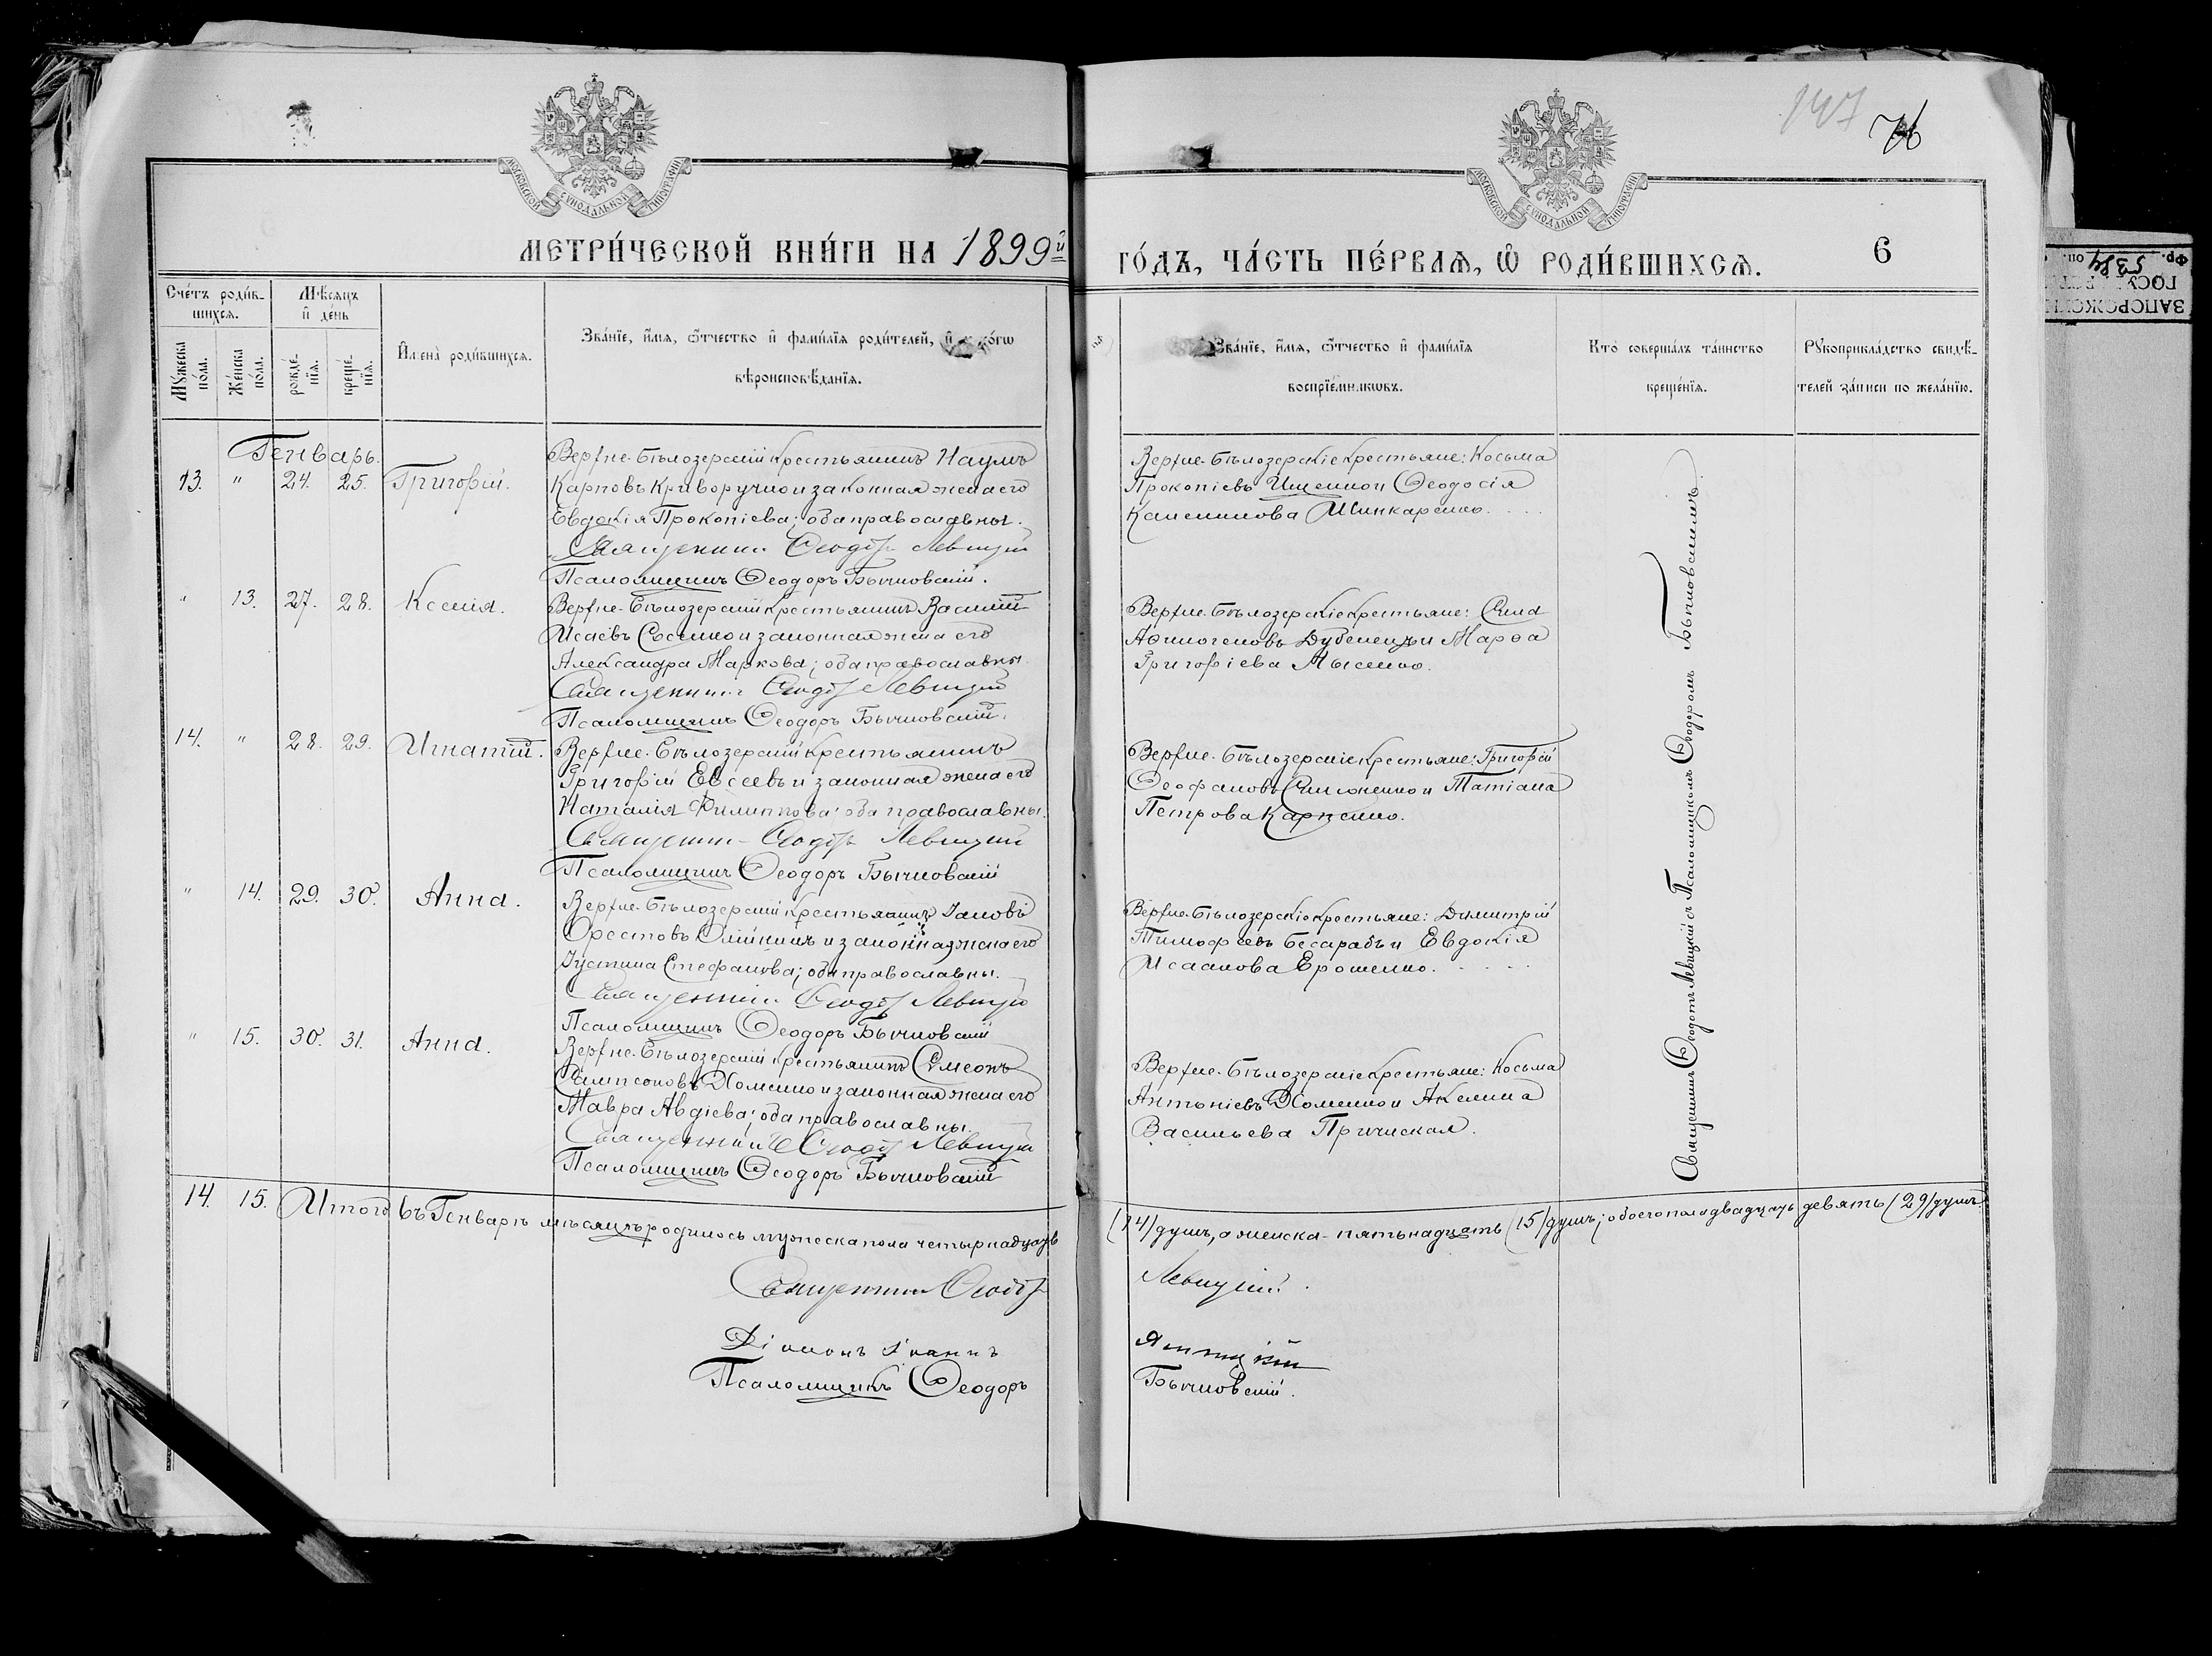 147
76
МОСКОВСКОЙ СѴНОДАЛЬНОЙ ТИПОГРАФІИ
МОСКОВСКОЙ СѴНОДАЛЬНОЙ ТИПОГРАФІИ
МЕТРИ́ЧЕСКОЙ КНИ́ГИ НА 1899й
ГО́ДЪ, ЧА́СТЬ ПЕ́РВАѦ, Ѿ РОДИ́ВШИХСѦ.
6
Сче́тъ роди́в-
шихсѧ.
Мꙋ́жеска
по́ла.
Же́нска
по́ла.
Мѣ́сѧцъ
и҆ де́нь
рожде́-
нїѧ.
креще́-
нїѧ.
И҆мена̀ роди́вшихсѧ.
Зва́нїе, и҆́мѧ, ѻ҆́тчество и҆ фами́лїѧ роди́телей, и҆
вѣроисповѣ́данїѧ.
Зва́нїе, и҆́мѧ, ѻ҆́тчество и҆ фами́лїѧ
воспрїе́мникѡвъ.
Кто̀ соверша́лъ та́инство
креще́нїѧ.
Рꙋкоприкла́дство свидѣ́-
телей за́писи по жела́нїю.
Генварь.
13. " 24. 25. Григорій.
Верхне-Бѣлозерскій крестьянинъ Наумъ
Карповъ Криворучко и законная жена его
Евдокія Прокопіева; оба православны.
Священникъ Ѳеодотъ Левицкій
Псаломщикъ Ѳеодоръ Бычковскій.
Верхне-Бѣлозерскіе крестьяне: Косьма
Прокопіевъ Ищенко и Ѳеодосія
Шинкаренко.
" 13. 27. 28. Ксенія.
Верхне-Бѣлозерскій крестьянинъ Василій
Исаевъ Сосенко и законная жена его
Александра Маркова; оба православны.
Священникъ Ѳеодотъ Левицкій
Псаломщикъ Ѳеодоръ Бычковскій.
Верхне-Бѣлозерскіе крестьяне: Сила
Аѳиногеновъ Дубенецъ и Марѳа
Григоріева Лысенко.
14. " 28. 29. Игнатій.
Верхне-Бѣлозерскій крестьянинъ
Григорій Евсеевъ и законная жена его
Наталія Филиппова; оба православны.
Священникъ Ѳеодотъ Левицкій
Псаломщикъ Ѳеодоръ Бычковскій
Верхне-Бѣлозерскіе крестьяне: Григорій
Ѳеофановъ и Татіана
Петрова Карпенко.
" 14. 29. 30. Анна.
Верхне-Бѣлозерскій крестьянинъ Іаковъ
Орестовъ Олійникъ и законная жена его
Іустина Стефанова; оба православны.
Священникъ Ѳеодотъ Левицкій
Псаломщикъ Ѳеодоръ Бычковскій
Верхне-Бѣлозерскіе крестьяне: Димитрій
Тимофеевъ Бесарабъ и Евдокія
Исаакова Ерошенко.
" 15. 30. 31. Анна.
Верхне-Бѣлозерскій крестьянинъ Симеонъ
Сампсоновъ Хоменко и законная жена его
Мавра Авдіева; оба православны.
Священникъ Ѳеодотъ Левицкій
Псаломщикъ Ѳеодоръ Бычковскій
Верхне-Бѣлозерскіе крестьяне: Косьма
Антоніевъ Хоменко и Акелина
Васильева
Священникъ Ѳеодотъ Левицкій съ Псаломщикомъ Ѳеодоромъ Бычковскимъ.
14. 15. Итого въ Генварѣ мѣсяцѣ родилось мужеска пола четырнадцать
(14) душъ, а женска - пятьнадцать (15) душъ; обоего пола двадцать девять (29) душъ.
Священникъ Ѳеодотъ Левицкій.
Діаконъ Іоаннъ
Псаломщикъ Ѳеодоръ Бычковскій.
ЗАПОРОЖ
ГОСУ
5384
оп.